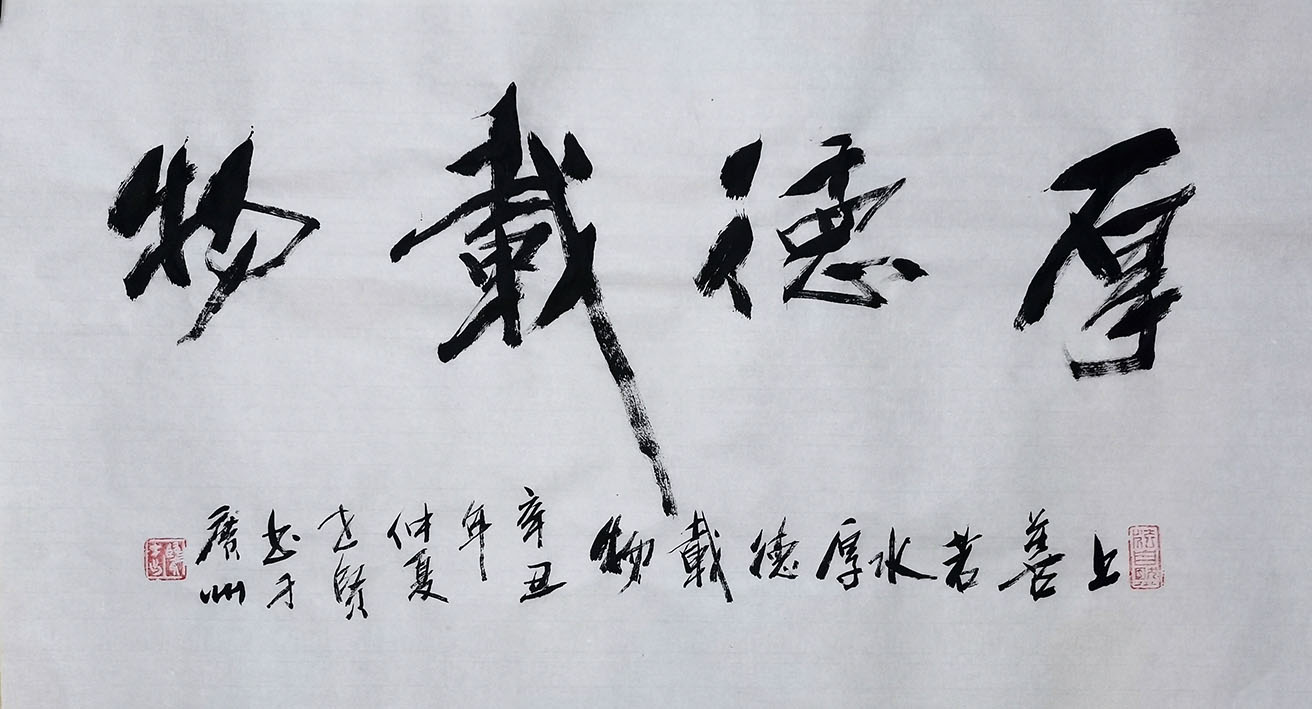 厚德載物
上善若水厚德載物辛丑年仲夏志賢書於廣州